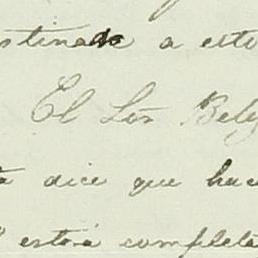 stinado a esto
El Sor Bely
a dice que hac
estará completa